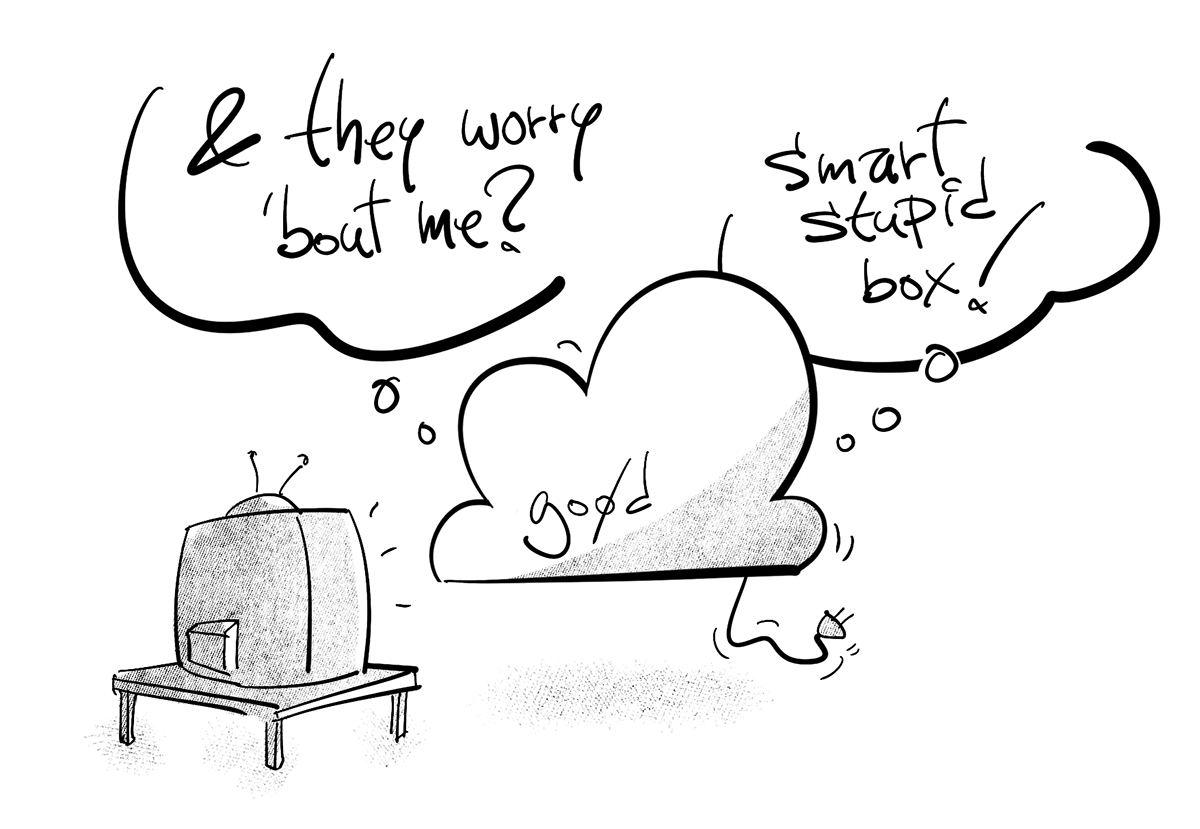 & they worry
'bout me?
smart
stupid
box!
good